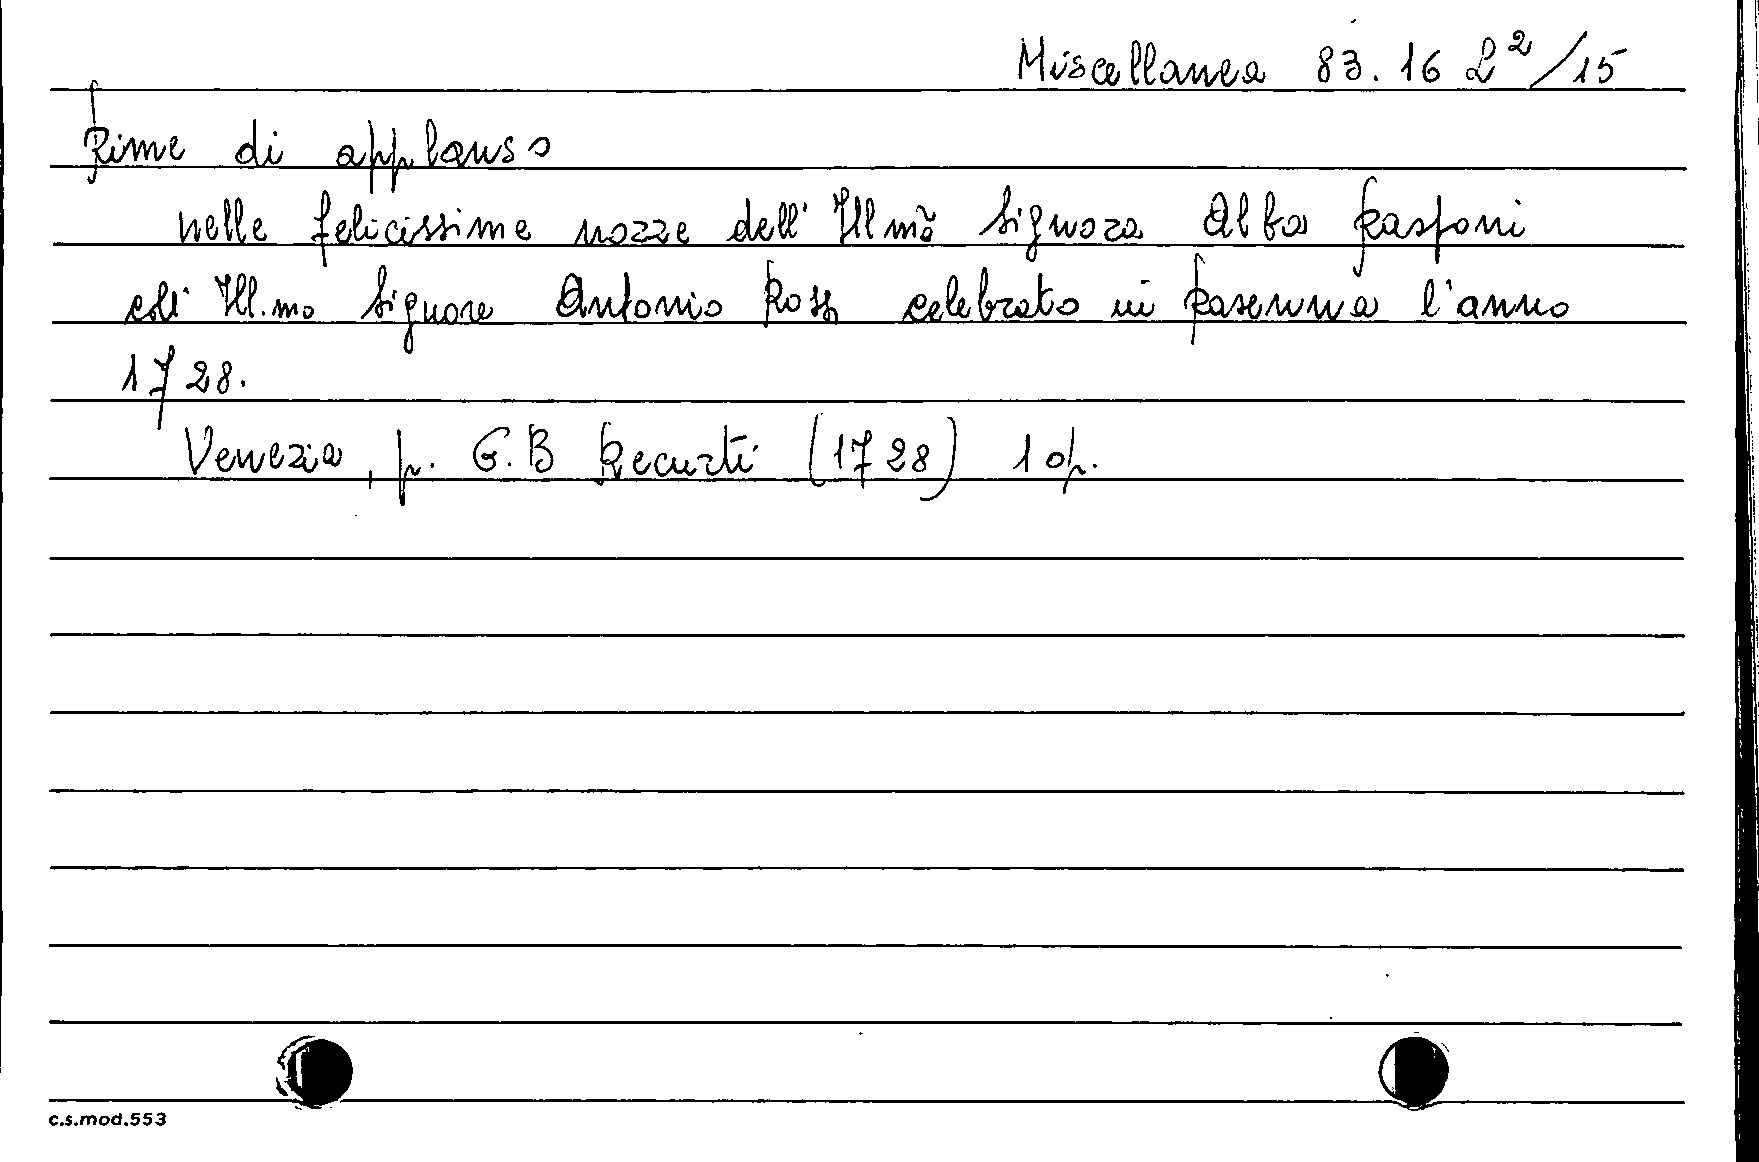 Miscellanea 83. 16 L²/15
Rime di applauso
nelle felicissime nozze dell' Ill mã Signora Alba Rasponi
coll' Ill.mo Signore Antonio Rossi celebrato in Ravenna l'anno
1728.
Venezia, p. G.B Recurti (1728) 1 op.
c.s.mod.553